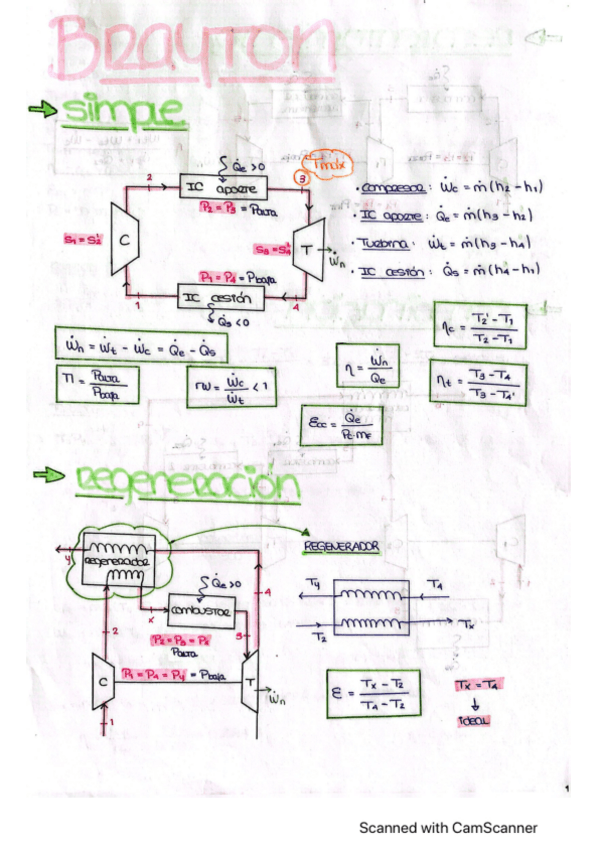 BRAYTON
simple
2
Q̇e > 0
3
Tmáx
IC aporte
P2 = P3 = Palta
S1 = S2'
C
S3 = S4'
T
Ẇn
P1 = P4 = Pbaja
1
IC cesión
4
Q̇s < 0
· compresor : Ẇc = ṁ(h2 - h1)
· IC aporte : Q̇e = ṁ(h3 - h2)
· Turbina : Ẇt = ṁ(h3 - h4)
· IC cesión : Q̇s = ṁ(h4 - h1)
Ẇn = Ẇt - Ẇc = Q̇e - Q̇s
Π = Palta / Pbaja
rw = Ẇc / Ẇt < 1
η = Ẇn / Q̇e
ηc = T2' - T1 / T2 - T1
ηt = T3 - T4 / T3 - T4'
Q̇e
regeneración
y
regenerador
REGENERADOR
Q̇e > 0
4
x
combustor
2
3
P2 = P3 = Px
Palta
P1 = P4 = Py = Pbaja
C
T
Ẇn
1
Ty
T4
T2
Tx
ε = Tx - T2 / T4 - T2
Tx = T4
↓
Ideal
1
Scanned with CamScanner